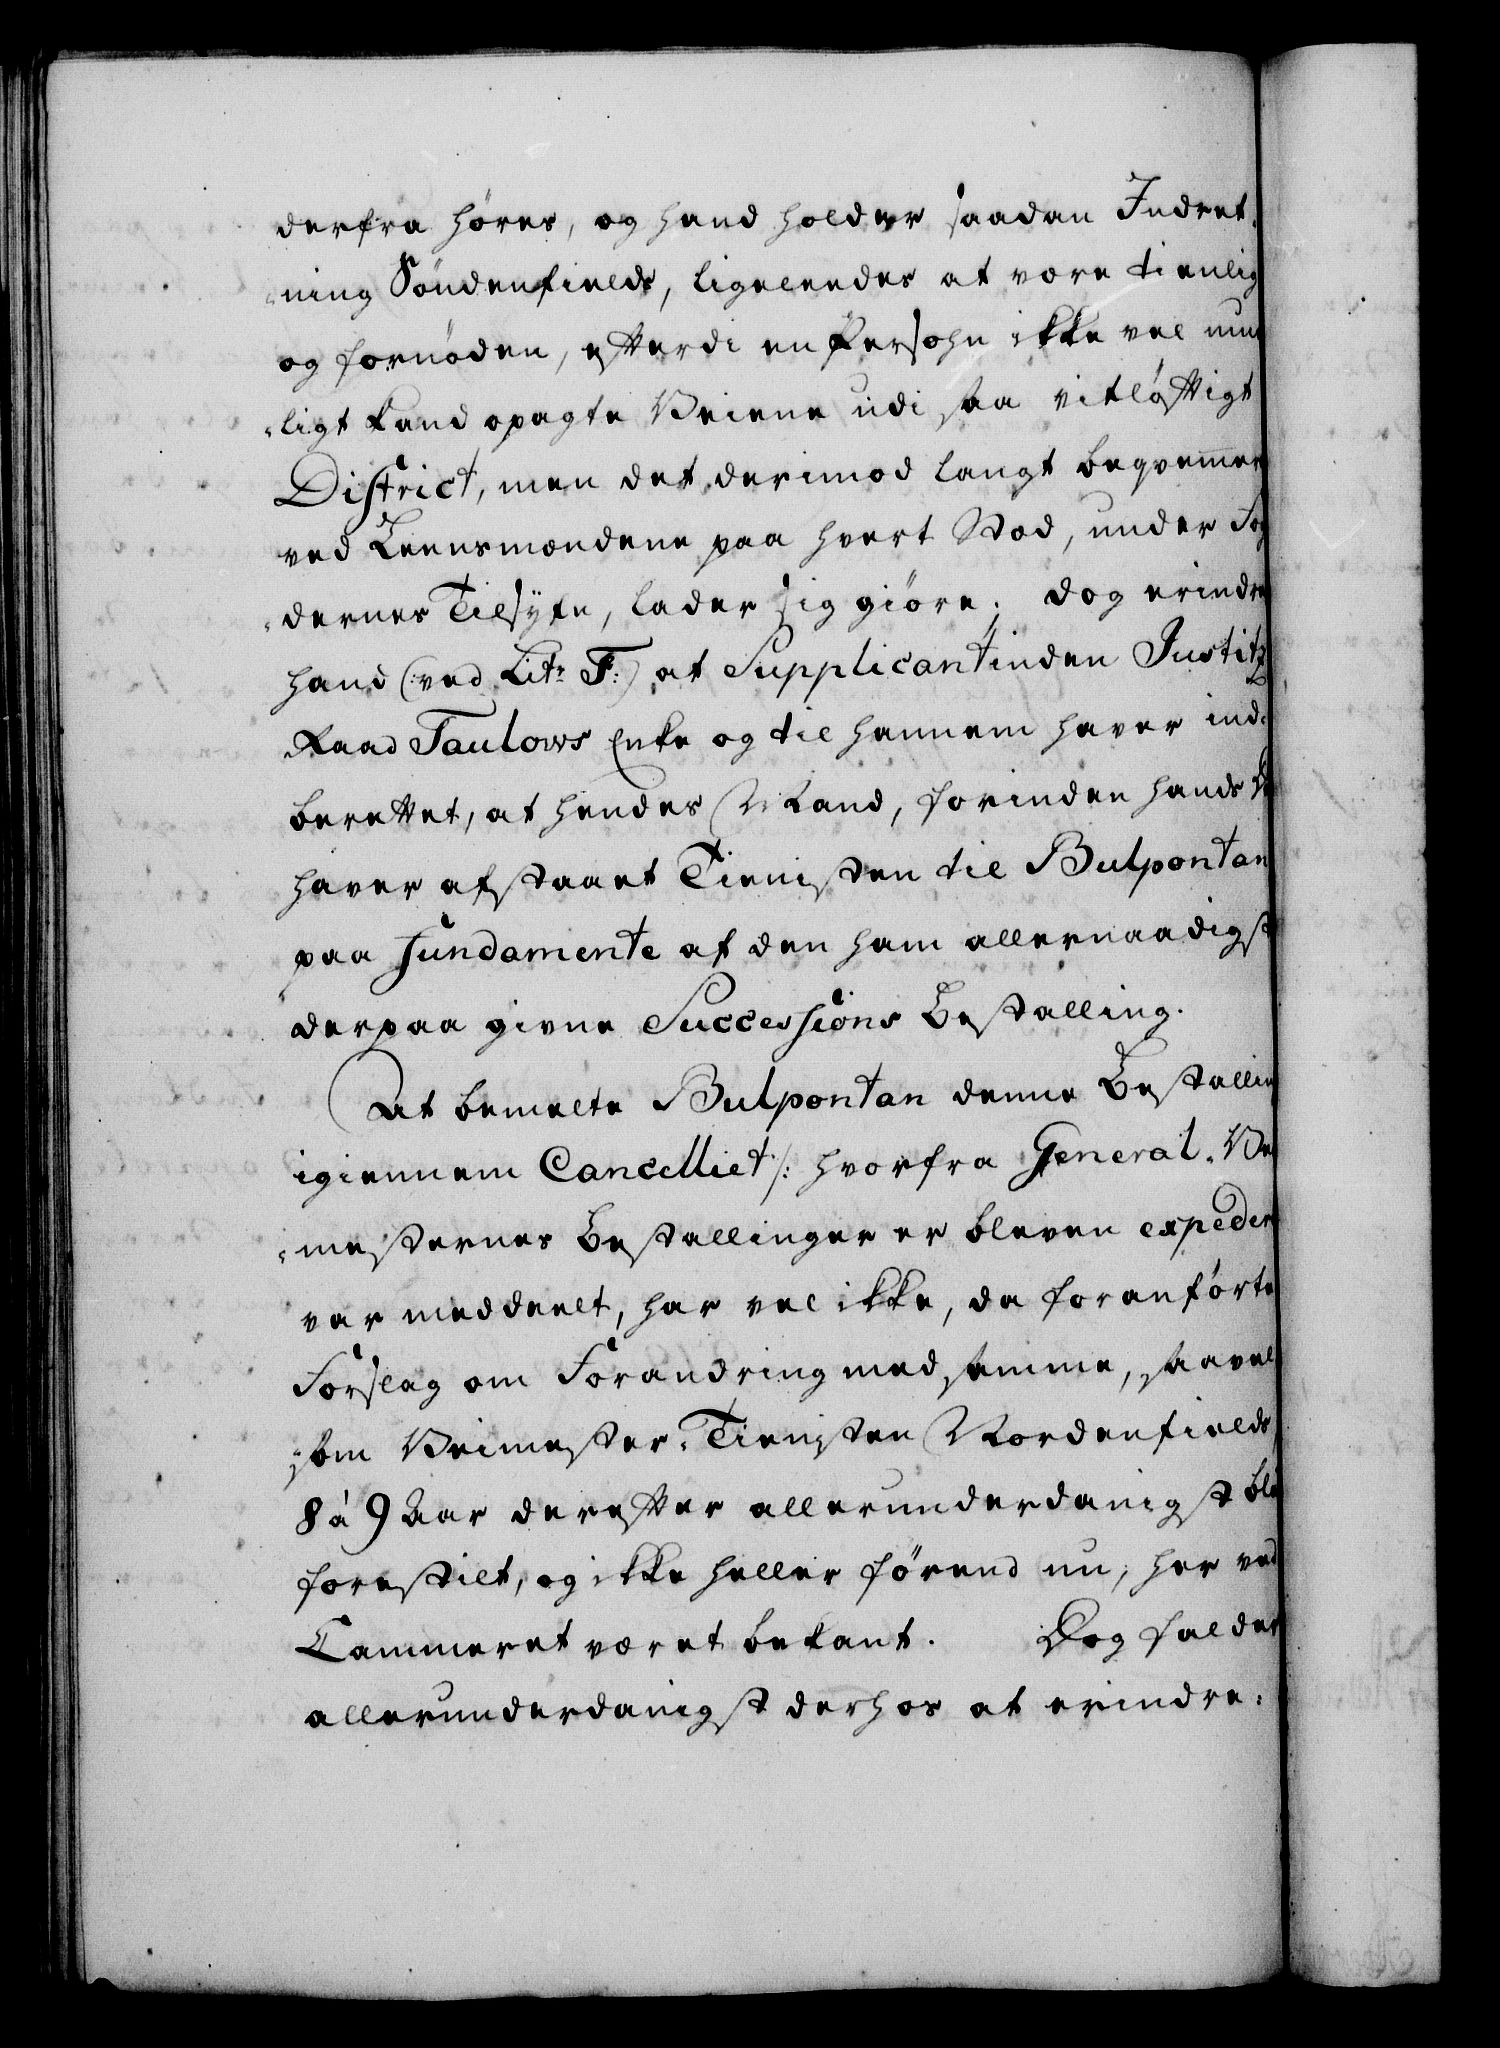 derfra höres, og hand holder saadan Indret-
-ning Söndenfields, ligeleedes at være tienlig
og fornöden, efterdi en Persohn ikke vel mue
-ligt kand opagte Veiene udi saa vitlöftigt
District, men det derimod langt beqvemmer
ved Leensmændene paa hvert Stæd, under Fog
-dernes Tilsyfn, lader sig giöre; dog erindre
hand (:ved Litr F:) at Supplicantinden Justitz
Raad Taulows Enke og til hannem haver ind-
berettet, at hendes Mand, forinden hands
haver afstaaet Tienisten til Bulpontan
paa Fundamente af den ham allernaadigst
derpaa givne Successions Bestalling.
At bemelte Bulpontan denne Bestallin
igiennem Cancelliet /: hvorfra General-Ve
-mesternes Bestallinger er bleven expeder
var meddeelt, har vel ikke, da foranförte
Forslag om Forandring med samme, saavel
som Veimester-Tienisten Nordenfields
8 à 9 Aar derefter allerunderdanigst ble
forestilt, og ikke heller förend nu, her ved
Cammeret været bekant. Dog falder
allerunderdanigst derhos at erindre: